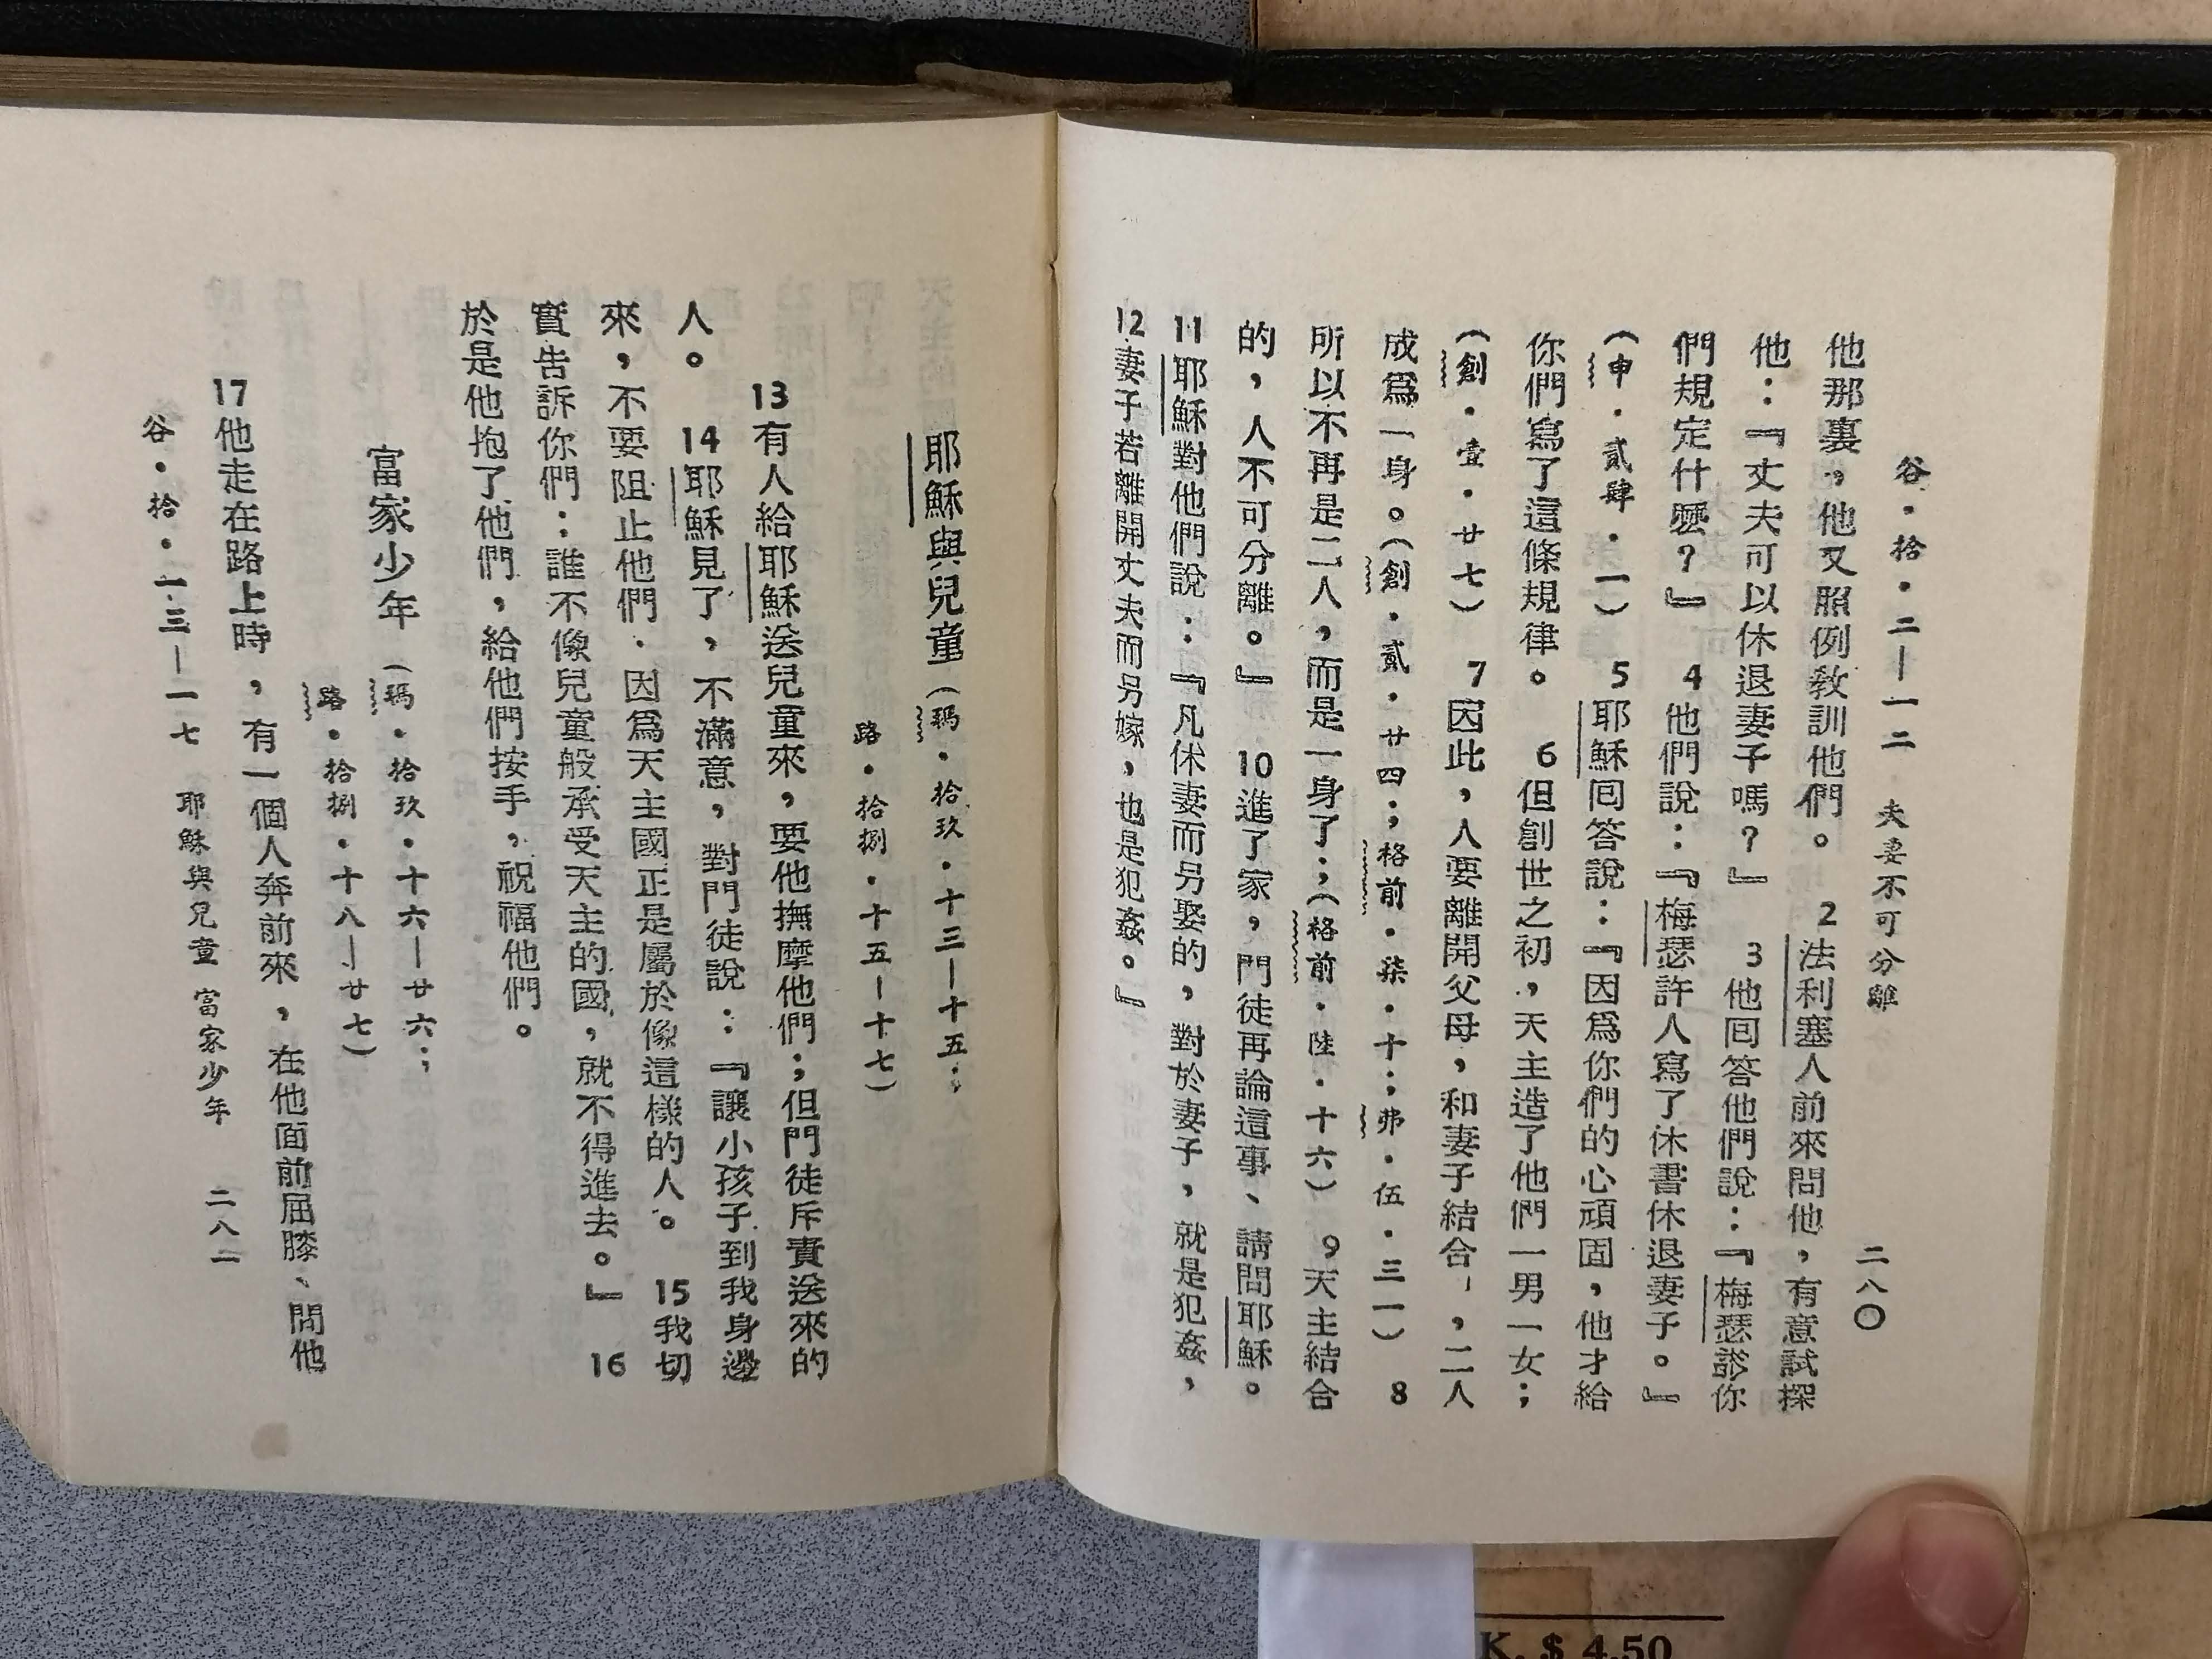 谷・拾・二—一二　夫妻不可分離　二八〇
他那裏，他又照例敎訓他們。　2法利塞人前來問他，有意試探
他：『丈夫可以休退妻子嗎？』　3他囘答他們說：『梅瑟給你
們規定什麼？』　4他們說：『梅瑟許人寫了休書休退妻子。』
（申・貳肆・一）　5耶穌囘答說：『因爲你們的心頑固，他才給
你們寫了這條規律。　6但創世之初，天主造了他們一男一女；
（創・壹・廿七）　7因此，人要離開父母，和妻子結合，，二人
成爲一身。（創・貳・廿四；格前・柒・十；弗・伍・三一）　8
所以不再是二人，而是一身了；（格前・陸・十六）　9天主結合
的，人不可分離。』　10進了家，門徒再論這事、請問耶穌。
11耶穌對他們說：『凡休妻而另娶的，對於妻子，就是犯姦，
12妻子若離開丈夫而另嫁，也是犯姦。』
耶穌與兒童（瑪・拾玖・十三—十五；
路・拾捌・十五—十七）
13有人給耶穌送兒童來，要他撫摩他們；但門徒斥責送來的
人。　14耶穌見了，不滿意，對門徒說：『讓小孩子到我身邊
來，不要阻止他們．因爲天主國正是屬於像這樣的人。　15我切
實告訴你們：誰不像兒童般承受天主的國，就不得進去。』　16
於是他抱了他們，給他們按手，祝福他們。
富家少年（瑪・拾玖・十六—廿六；
路・拾捌・十八—廿七）
17他走在路上時，有一個人奔前來，在他面前屈膝、問他
谷・拾・一三—一七　耶穌與兒童　富家少年　二八一
K. $ 4.50